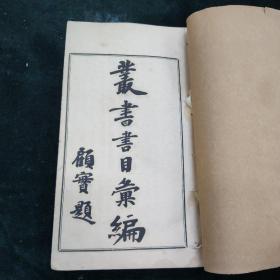 叢書書目彙編
顧實題